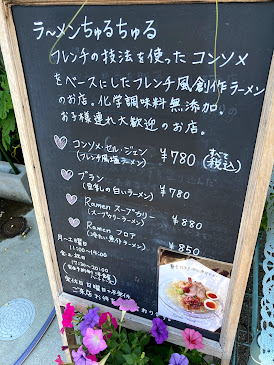 ラ〜メンちゅるちゅる
フレンチの技法を使ったコンソメ
をベースにしたフレンチ風創作ラーメン
のお店。化学調味料無添加。
お子様連れ大歓迎のお店。
コンソメ・セル・ジェン ¥780 (税込)
(フレンチ風塩ラーメン)
ブラン ¥780
(豆乳の白いラーメン)
Ramen スープカリー ¥880
(スープカリーラーメン)
Ramen フロア ¥850
月〜土曜日
11:00〜14:00
17:30〜20:00
定休日 日曜日